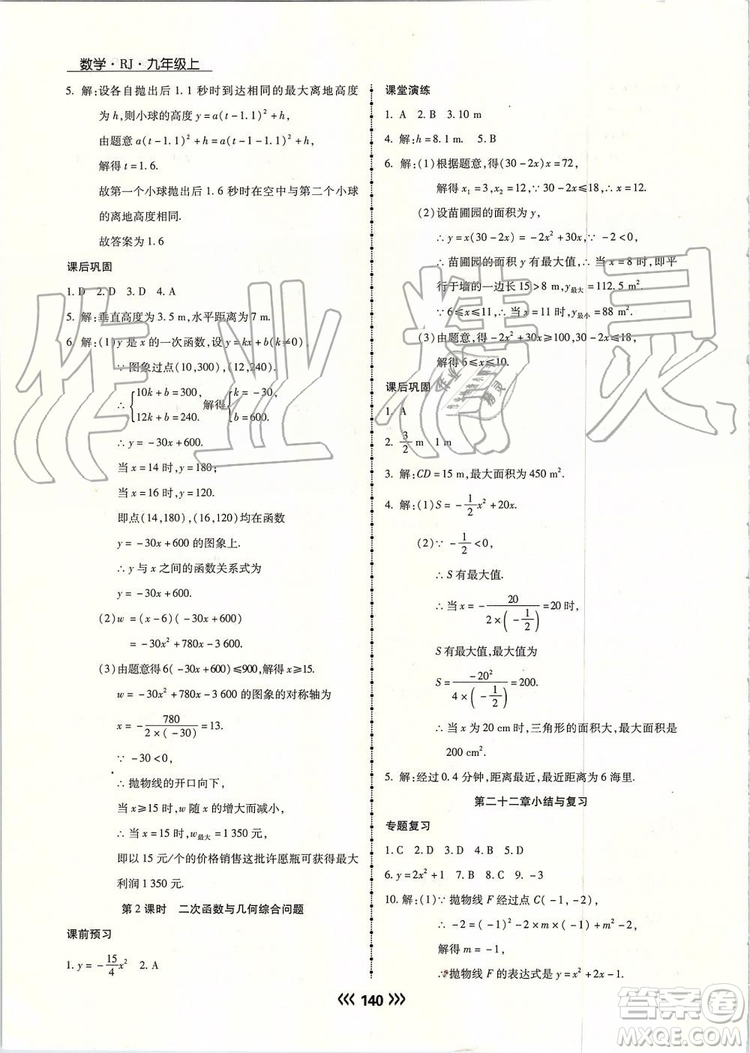 数学·RJ·九年级上
5. 解:设各自抛出后 1.1 秒时到达相同的最大离地高度
为 h,则小球的高度 y=a(t-1.1)²+h,
由题意 a(t-1.1)²+h=a(t-1-1.1)²+h,
解得 t=1.6.
故第一个小球抛出后 1.6 秒时在空中与第二个小球
的离地高度相同.
故答案为 1.6
课后巩固
1. D 2. D 3. D 4. A
5. 解:垂直高度为 3.5 m,水平距离为 7 m.
6. 解:(1)y 是 x 的一次函数,设 y=kx+b(k≠0)
∵图象过点(10,300),(12,240),
∴{10k+b=300, 12k+b=240. 解得{k=-30, b=600.
∴y=-30x+600.
当 x=14 时,y=180;
当 x=16 时,y=120,
即点(14,180),(16,120)均在函数
y=-30x+600 的图象上.
∴y 与 x 之间的函数关系式为
y=-30x+600.
(2)w=(x-6)(-30x+600)
=-30x²+780x-3 600.
(3)由题意得 6(-30x+600)≤900,解得 x≥15.
w=-30x²+780x-3 600 的图象的对称轴为
x=-780/(2×(-30))=13.
∵-30<0,
∴抛物线的开口向下,
当 x≥15 时,w 随 x 的增大而减小,
∴当 x=15 时,w最大=1 350 元,
即以 15 元/个的价格销售这批许愿瓶可获得最大
利润 1 350 元.
第 2 课时 二次函数与几何综合问题
课前预习
1. y=-15/4x² 2. A
课堂演练
1. A 2. B 3. 10 m
4. 解:h=8.1 m. 5. B
6. 解:(1)根据题意,得(30-2x)x=72,
解得 x₁=3,x₂=12,∵30-2x≤18,∴x=12.
(2)设苗圃园的面积为 y,
∴y=x(30-2x)=-2x²+30x,∵-2<0,
∴苗圃园的面积 y 有最大值,∴当 x=15/2 时,即平
行于墙的一边长 15>8 m,y最大=112.5 m²,
∵6≤x≤11,∴当 x=11 时,y最小=88 m².
(3)由题意得-2x²+30x≥100,∵30-2x≤18,
解得 6≤x≤10.
课后巩固
1. A
2. 3/2 m 1 m
3. 解:CD=15 m,最大面积为 450 m².
4. 解:(1)S=-1/2x²+20x.
(2)∵-1/2<0,
∴S 有最大值.
∴当 x=-20/(2×(-1/2))=20 时,
S 有最大值,最大值为
S=-20²/(4×(-1/2))=200.
∴当 x 为 20 cm 时,三角形的面积大,最大面积是
200 cm².
5. 解:经过 0.4 分钟,距离最近,最近距离为 6 海里.
第二十二章小结与复习
专题复习
1. C 2. D 3. D 4. B 5. D
6. y=2x²+1 7. B 8. C 9. -3
10. 解:∵抛物线 F 经过点 C(-1,-2),
∴-2=(-1)²-2×m×(-1)+m²-2,
解得 m=-1,
∴抛物线 F 的表达式是 y=x²+2x-1.
140
作业精灵
作业精灵
答案圈
MXQE.COM